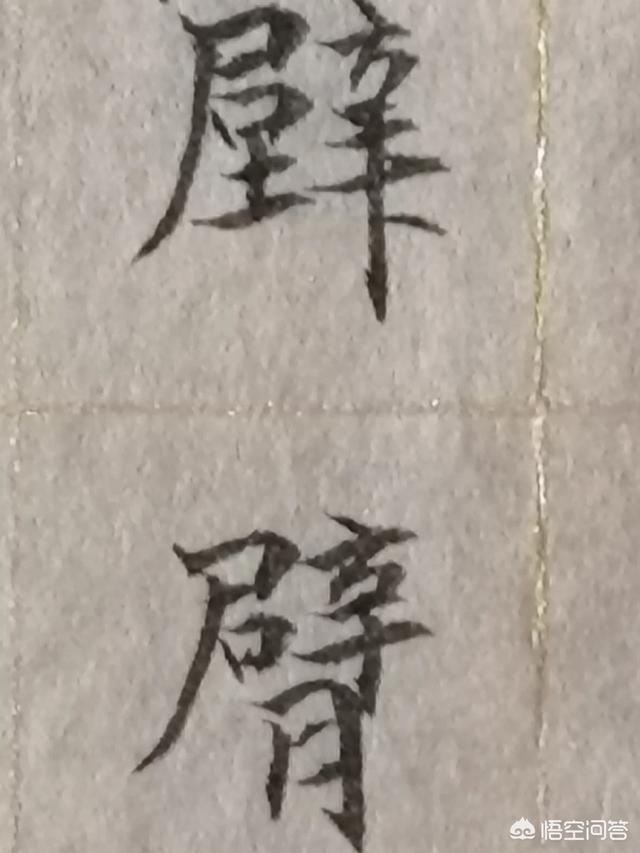 壁
臂
悟空问答